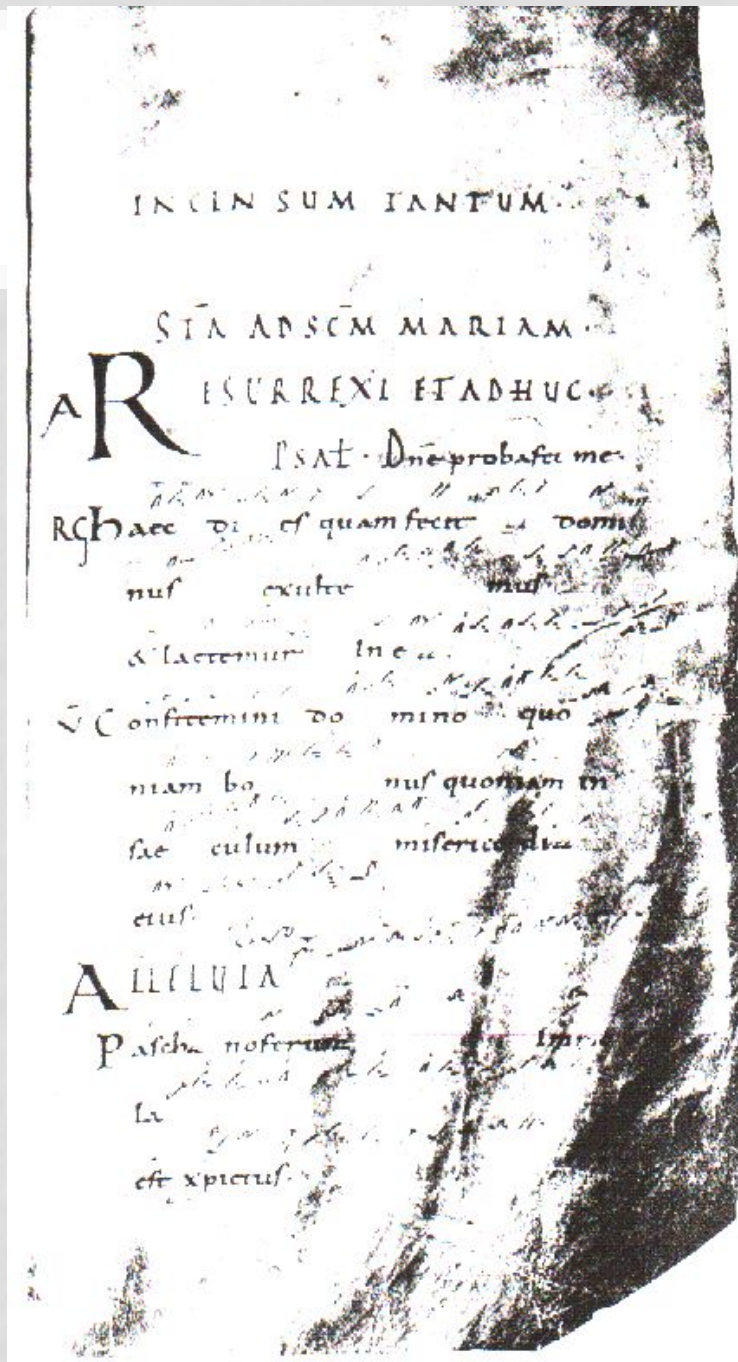 IN CIN SUM TANTUM.
STĀ AD SCM̄ MARIAM.
A RESURREXI ET ADHUC.
PSAL̄. Dnē probasti me.
RG haec di es quam fecit domi
nus exulte mus
& laetemur In eo.
V̄ Confitemini do mino quō
niam bo nus quoniam in
sae culum misericordia
eius.
ALLELUIA
Pascha nostrum Immo
la
est xpictus.